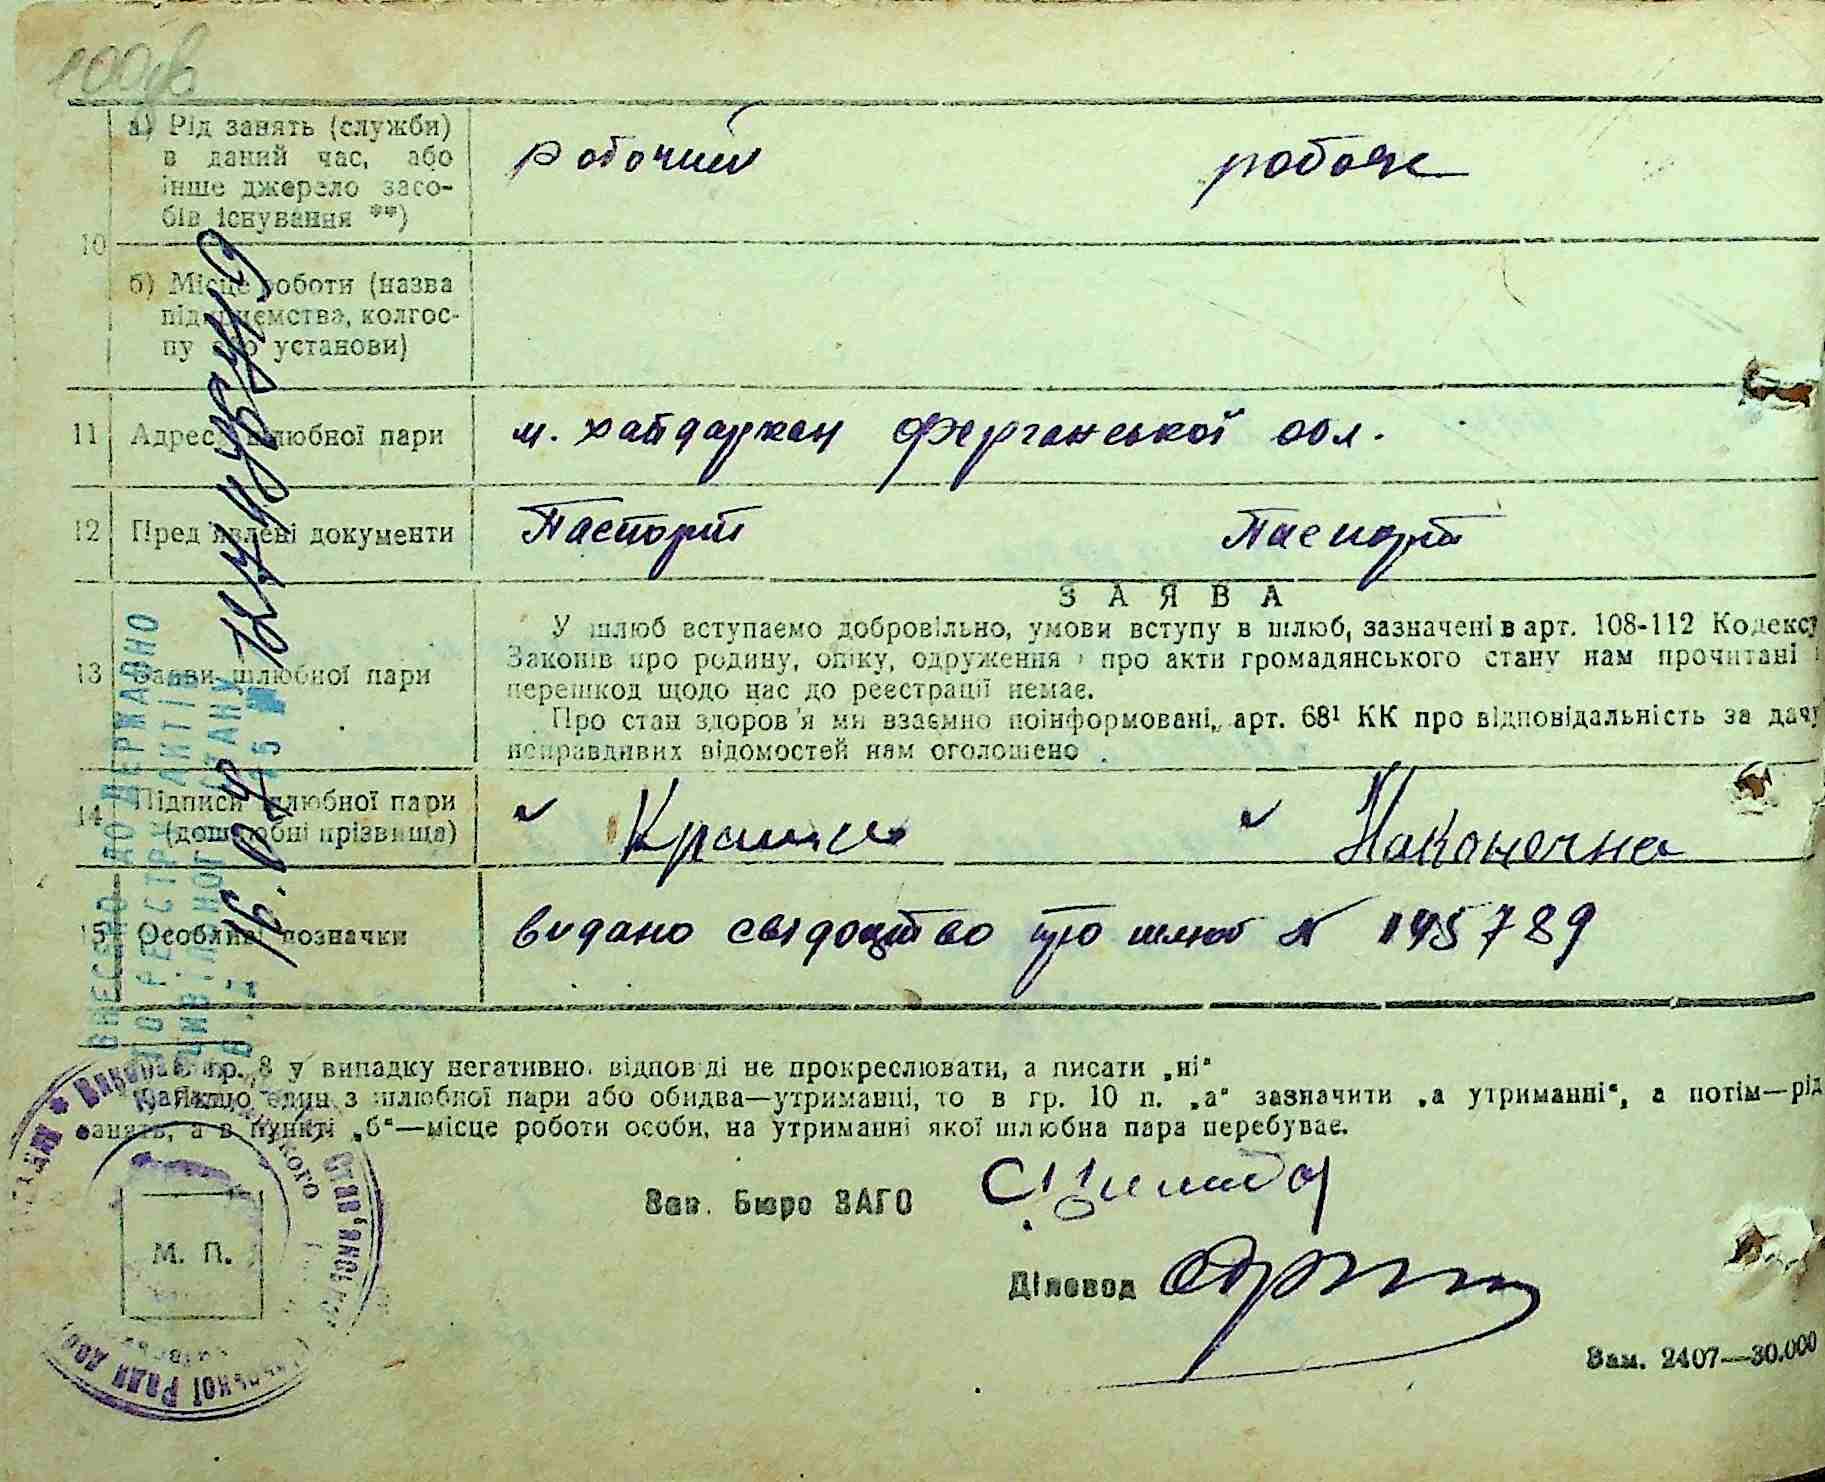 100
а) Рід занять (служби) в даний час, або інше джерело засобів існування **)
робочий
робоче
10
б) Місце роботи (назва підприємства, колгоспу або установи)
11 Адреса шлюбної пари
м. Хайдаркан Ферганської обл.
12 Пред'явлені документи
Паспорт
Паспорт
13 Заяви шлюбної пари
ЗАЯВА
У шлюб вступаємо добровільно, умови вступу в шлюб, зазначені в арт. 108-112 Кодексу
Законів про родину, опіку, одруження і про акти громадянського стану нам прочитані і
перешкод щодо нас до реєстрації немає.
Про стан здоров'я ми взаємно поінформовані, арт. 68¹ КК про відповідальність за дачу
неправдивих відомостей нам оголошено.
14 Підписи шлюбної пари (дошлюбні прізвища)
Наконечна
15 Особливі позначки
видано свідоцтво про шлюб № 195789
ВНЕСЕНО ДО ДЕРЖАВНО
РЕЄСТРУ АКТІВ
ЦИВІЛЬНОГО СТАНУ
гр. 8 у випадку негативно. відповіді не прокреслювати, а писати „ні“
Якщо один з шлюбної пари або обидва—утриманці, то в гр. 10 п. „а“ зазначити „а утриманні“, а потім—рід
занять, а в пункті „б“—місце роботи особи, на утриманні якої шлюбна пара перебуває.
Зав. Бюро ЗАГС
Діловод
М. П.
Зам. 2407—30.000